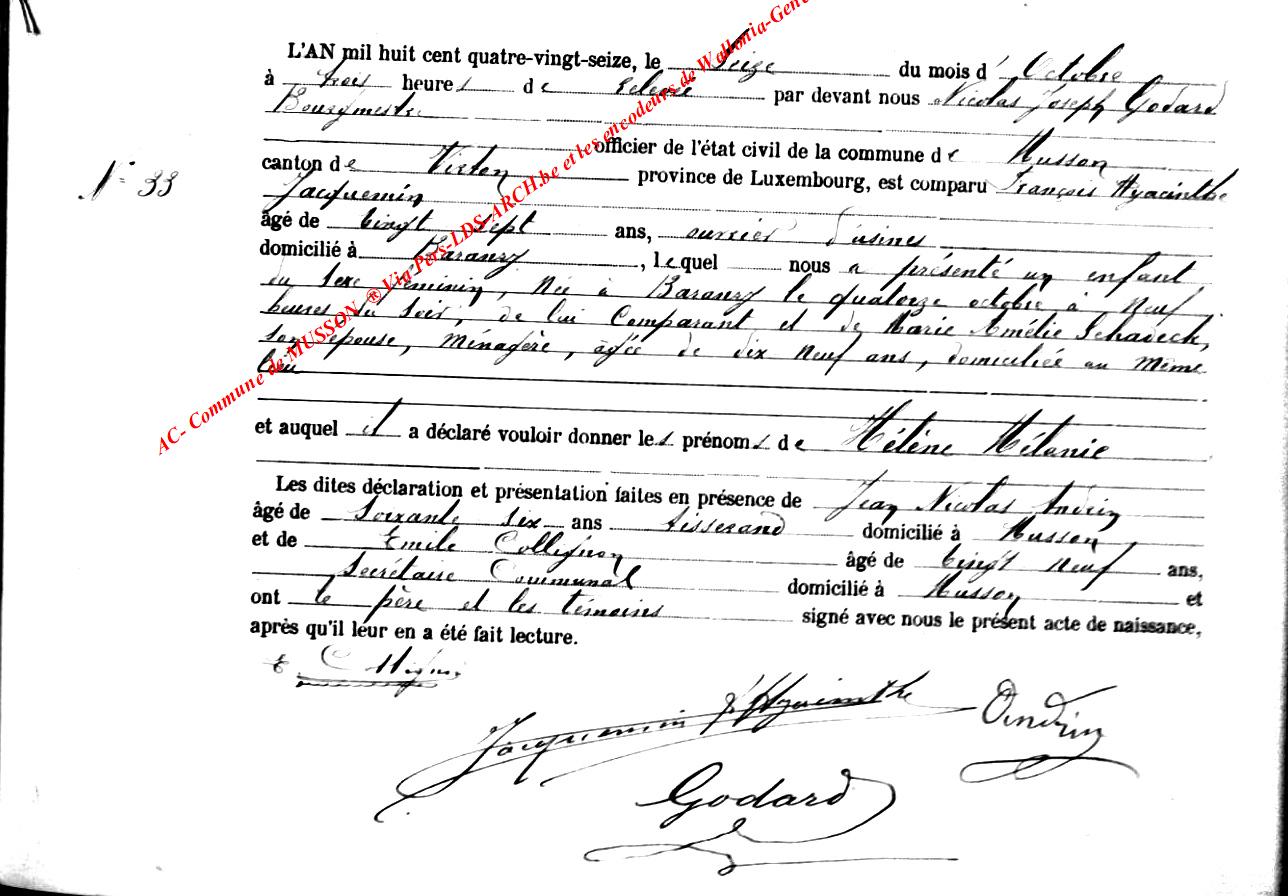 L'AN mil huit cent quatre-vingt-seize, le Seize du mois d' Octobre
à trois heures de relevée par devant nous Nicolas Joseph Godard
Bourgmestre
officier de l'état civil de la commune de Musson
N° 33
canton de Virton province de Luxembourg, est comparu François Hyacinthe
Jacquemin
âgé de Vingt sept ans, ouvrier d'usines
domicilié à Baranzy, lequel nous a présenté un enfant
du sexe féminin, née à Baranzy le quatorze octobre à neuf
heures du soir, de lui Comparant et de Marie Amélie Schadeck,
son épouse, Ménagère, âgée de dix neuf ans, domiciliée au même
lieu
et auquel il a déclaré vouloir donner les prénoms de Hélène Mélanie
Les dites déclaration et présentation faites en présence de Jean Nicolas Andrin
âgé de Soixante six ans tisserand domicilié à Musson
et de Emile Collignon âgé de Vingt neuf ans,
Secrétaire Communal domicilié à Musson et
ont le père et les témoins signé avec nous le présent acte de naissance,
après qu'il leur en a été fait lecture.
E Collignon
Jacquemin f Hyacinthe Andrin
Godard
AC- Commune de MUSSON ® Via Pers-LDS-ARCH.be et les encodeurs de Wallonia-Gene